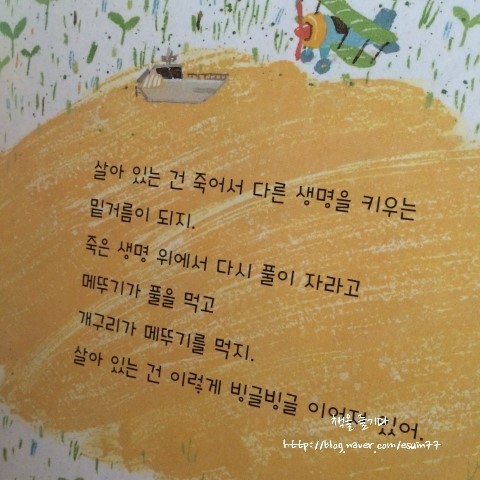 살아 있는 건 죽어서 다른 생명을 키우는
밑거름이 되지.
죽은 생명 위에서 다시 풀이 자라고
메뚜기가 풀을 먹고
개구리가 메뚜기를 먹지.
살아 있는 건 이렇게 빙글빙글 이어져 있어.
책을 즐기다
http://blog.naver.com/esuin77